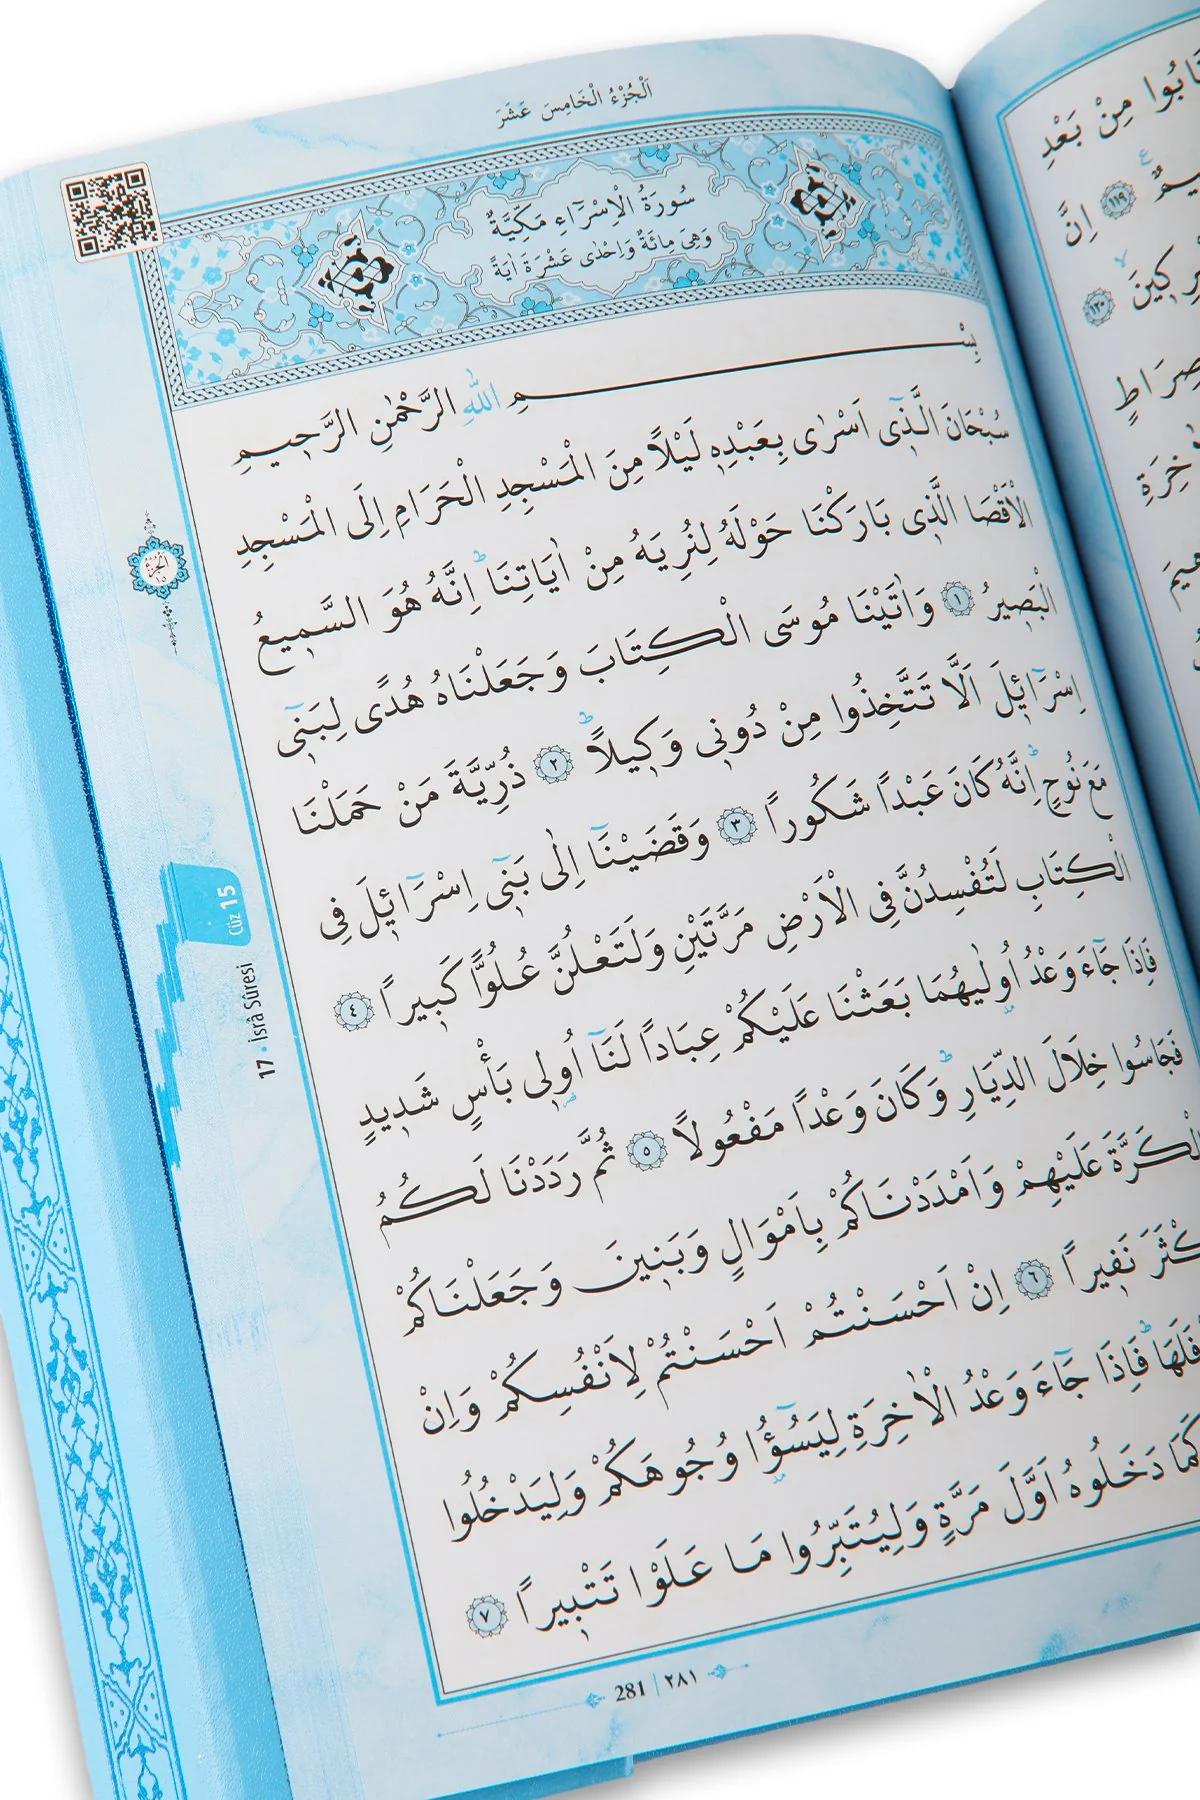 اَلْجُزْءُ الْخَامِسَ عَشَرَ
سُورَةُ الْاِسْرَٓاءِ مَكِّيَّةٌ
وَهِيَ مِائَةٌ وَاِحْدٰى عَشْرَةَ اٰيَةً
بِسْمِ اللّٰهِ الرَّحْمٰنِ الرَّحِيمِ
سُبْحَانَ الَّذٓي اَسْرٰى بِعَبْدِه۪ لَيْلًا مِنَ الْمَسْجِدِ الْحَرَامِ اِلَى الْمَسْجِدِ
الْاَقْصَا الَّذ۪ي بَارَكْنَا حَوْلَهُ لِنُرِيَهُ مِنْ اٰيَاتِنَاۜ اِنَّهُ هُوَ السَّم۪يعُ
الْبَص۪يرُ ﴿١﴾ وَاٰتَيْنَا مُوسَى الْكِتَابَ وَجَعَلْنَاهُ هُدًى لِبَن۪ٓي
اِسْرَٓاء۪يلَ اَلَّا تَتَّخِذُوا مِنْ دُون۪ي وَك۪يلًاۜ ﴿٢﴾ ذُرِّيَّةَ مَنْ حَمَلْنَا
مَعَ نُوحٍۜ اِنَّهُ كَانَ عَبْدًا شَكُورًا ﴿٣﴾ وَقَضَيْنَٓا اِلٰى بَن۪ٓي اِسْرَٓاء۪يلَ فِي
الْكِتَابِ لَتُفْسِدُنَّ فِي الْاَرْضِ مَرَّتَيْنِ وَلَتَعْلُنَّ عُلُوًّا كَب۪يرًا ﴿٤﴾
فَاِذَا جَٓاءَ وَعْدُ اُو۫لٰيهُمَا بَعَثْنَا عَلَيْكُمْ عِبَادًا لَنَٓا اُو۬ل۪ي بَأْسٍ شَد۪يدٍ
فَجَاسُوا خِلَالَ الدِّيَارِۜ وَكَانَ وَعْدًا مَفْعُولًا ﴿٥﴾ ثُمَّ رَدَدْنَا لَكُمُ
الْكَرَّةَ عَلَيْهِمْ وَاَمْدَدْنَاكُمْ بِاَمْوَالٍ وَبَن۪ينَ وَجَعَلْنَاكُمْ
نَف۪يرًا ﴿٦﴾ اِنْ اَحْسَنْتُمْ اَحْسَنْتُمْ لِاَنْفُسِكُمْ وَاِنْ
فَلَهَاۜ فَاِذَا جَٓاءَ وَعْدُ الْاٰخِرَةِ لِيَسُٓؤُ۫ا وُجُوهَكُمْ وَلِيَدْخُلُوا
كَمَا دَخَلُوهُ اَوَّلَ مَرَّةٍ وَلِيُتَبِّرُوا مَا عَلَوْا تَتْب۪يرًا ﴿٧﴾
281 | ٢٨١
الجزء
١٥
Cüz 15
17 • İsrâ Sûresi
مِنْ بَعْدِ
﴿١١٩﴾ اِنَّ
﴿١٢٠﴾